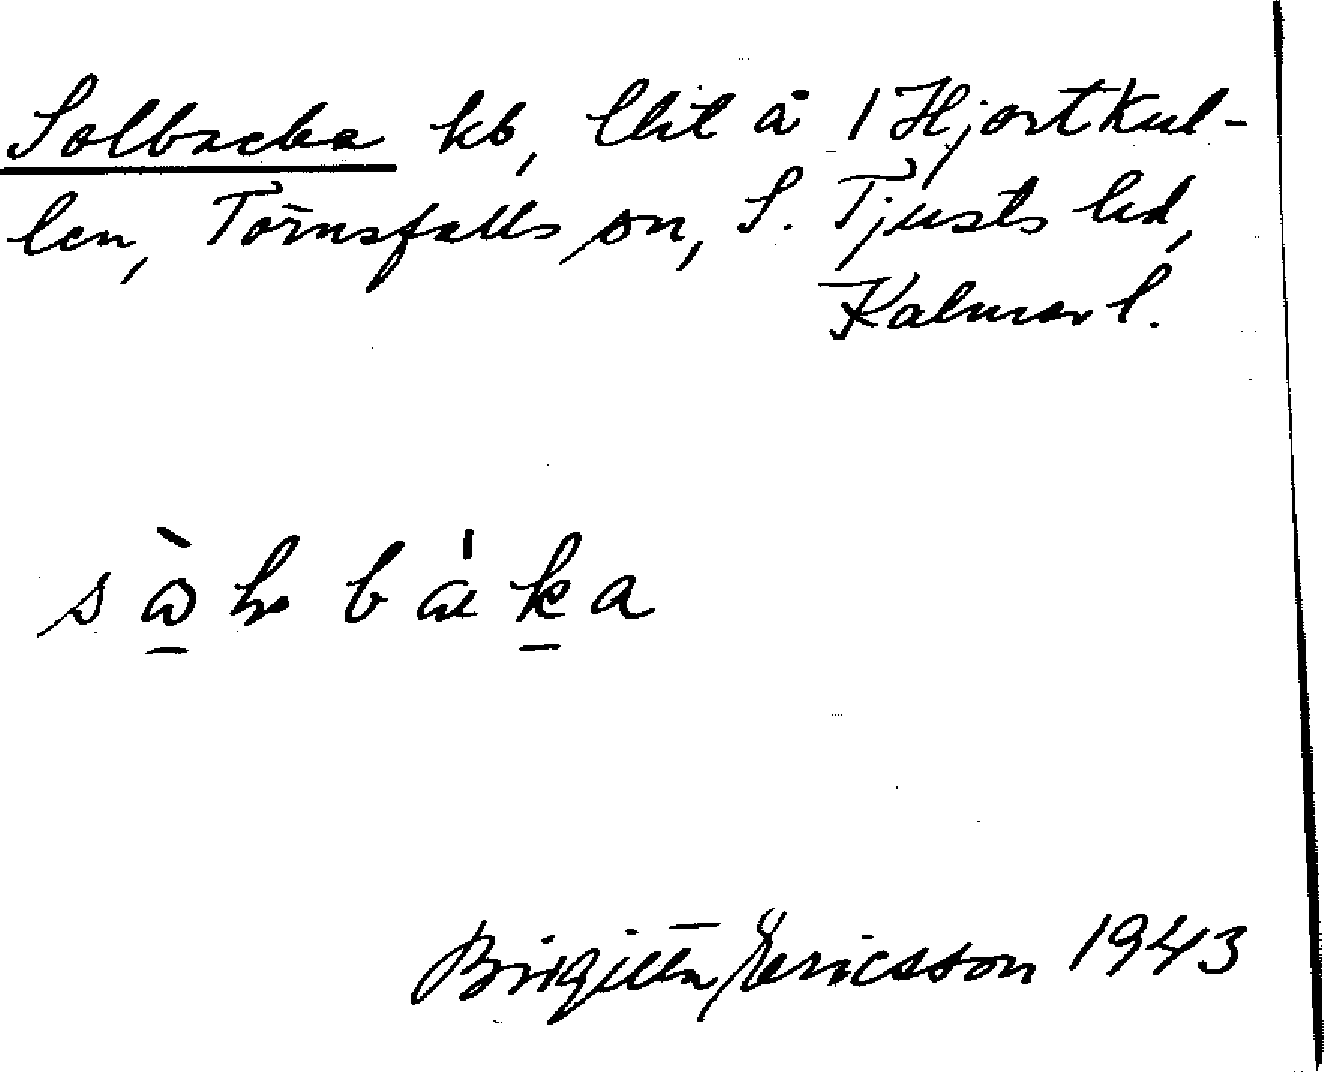 Solbacka kb, lht å 1 Hjortkul-
len, Törnsfalls sn, S. Tjusts hd,
Kalmar l.
Birgitta Ericsson 1943